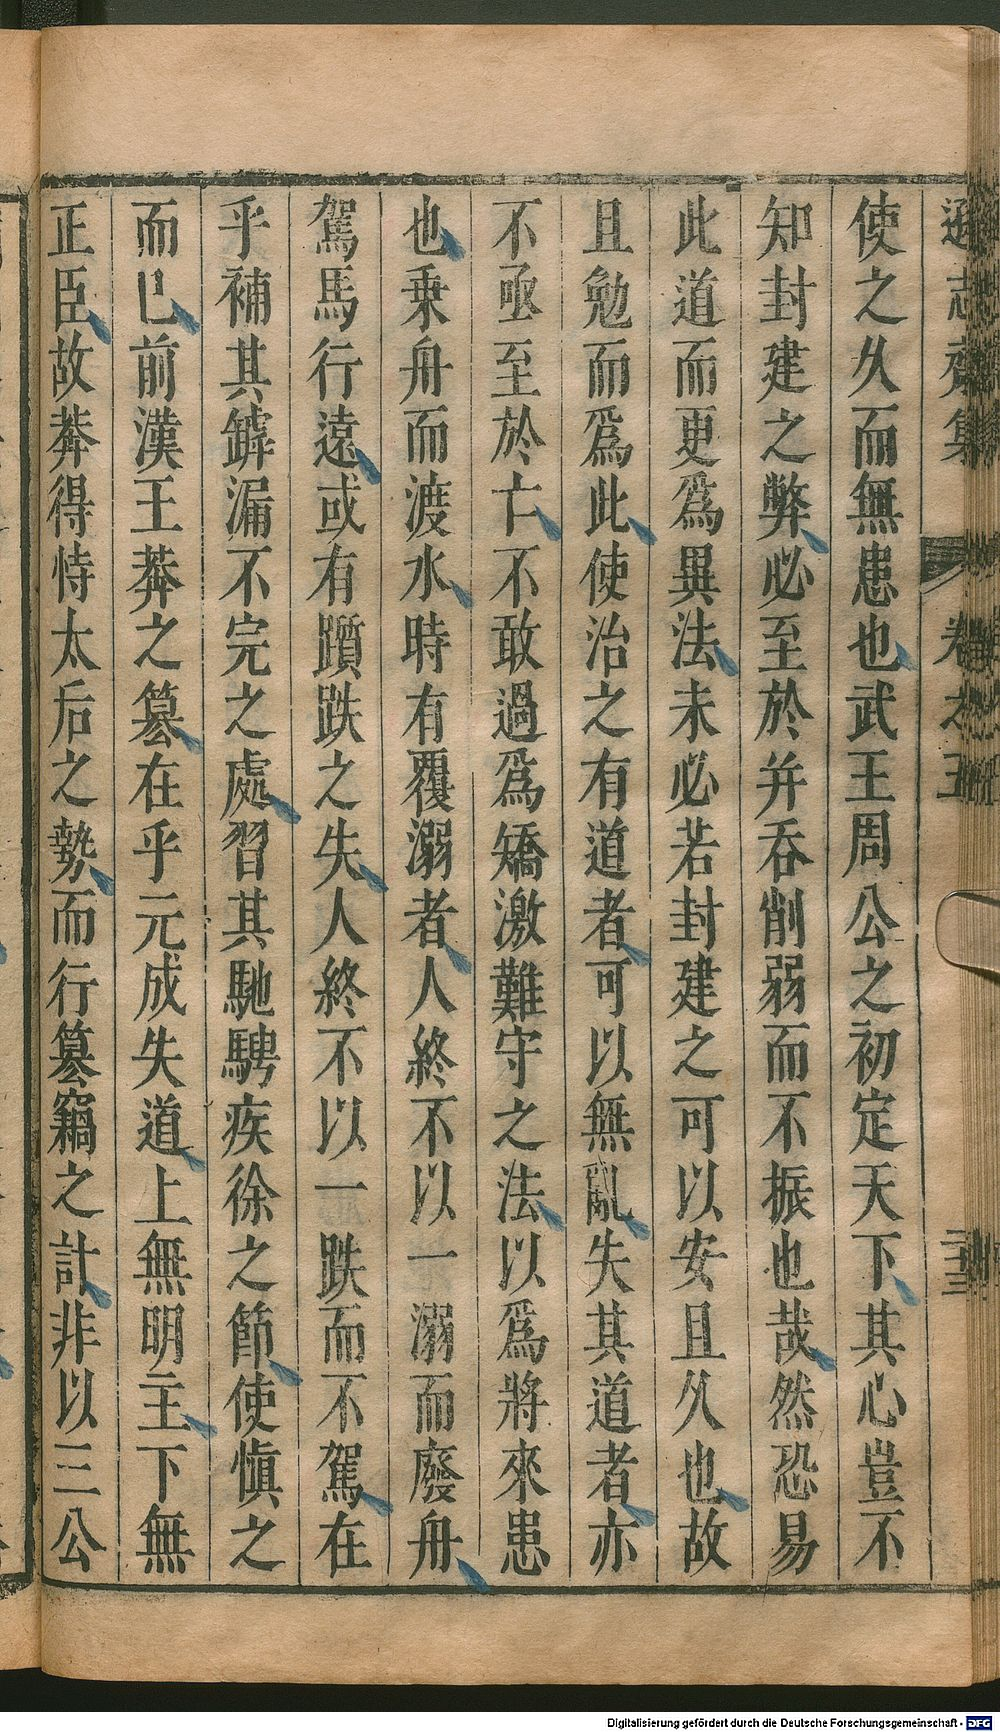 遜志齋集 卷之五 二十三
使之久而無患也武王周公之初定天下其心豈不
知封建之弊必至於并吞削弱而不振也哉然恐易
此道而更爲異法未必若封建之可以安且久也故
且勉而爲此使治之有道者可以無亂失其道者亦
不亟至於亡不敢過爲矯激難守之法以爲將來患
也乗舟而渡水時有覆溺者人終不以一溺而廢舟
駕馬行遠或有躓跌之失人終不以一跌而不駕在
乎補其罅漏不完之處習其馳騁疾徐之節使慎之
而已前漢王莽之簒在乎元成失道上無明主下無
正臣故莽得恃太后之勢而行簒竊之計非以三公
Digitalisierung gefördert durch die Deutsche Forschungsgemeinschaft - DFG